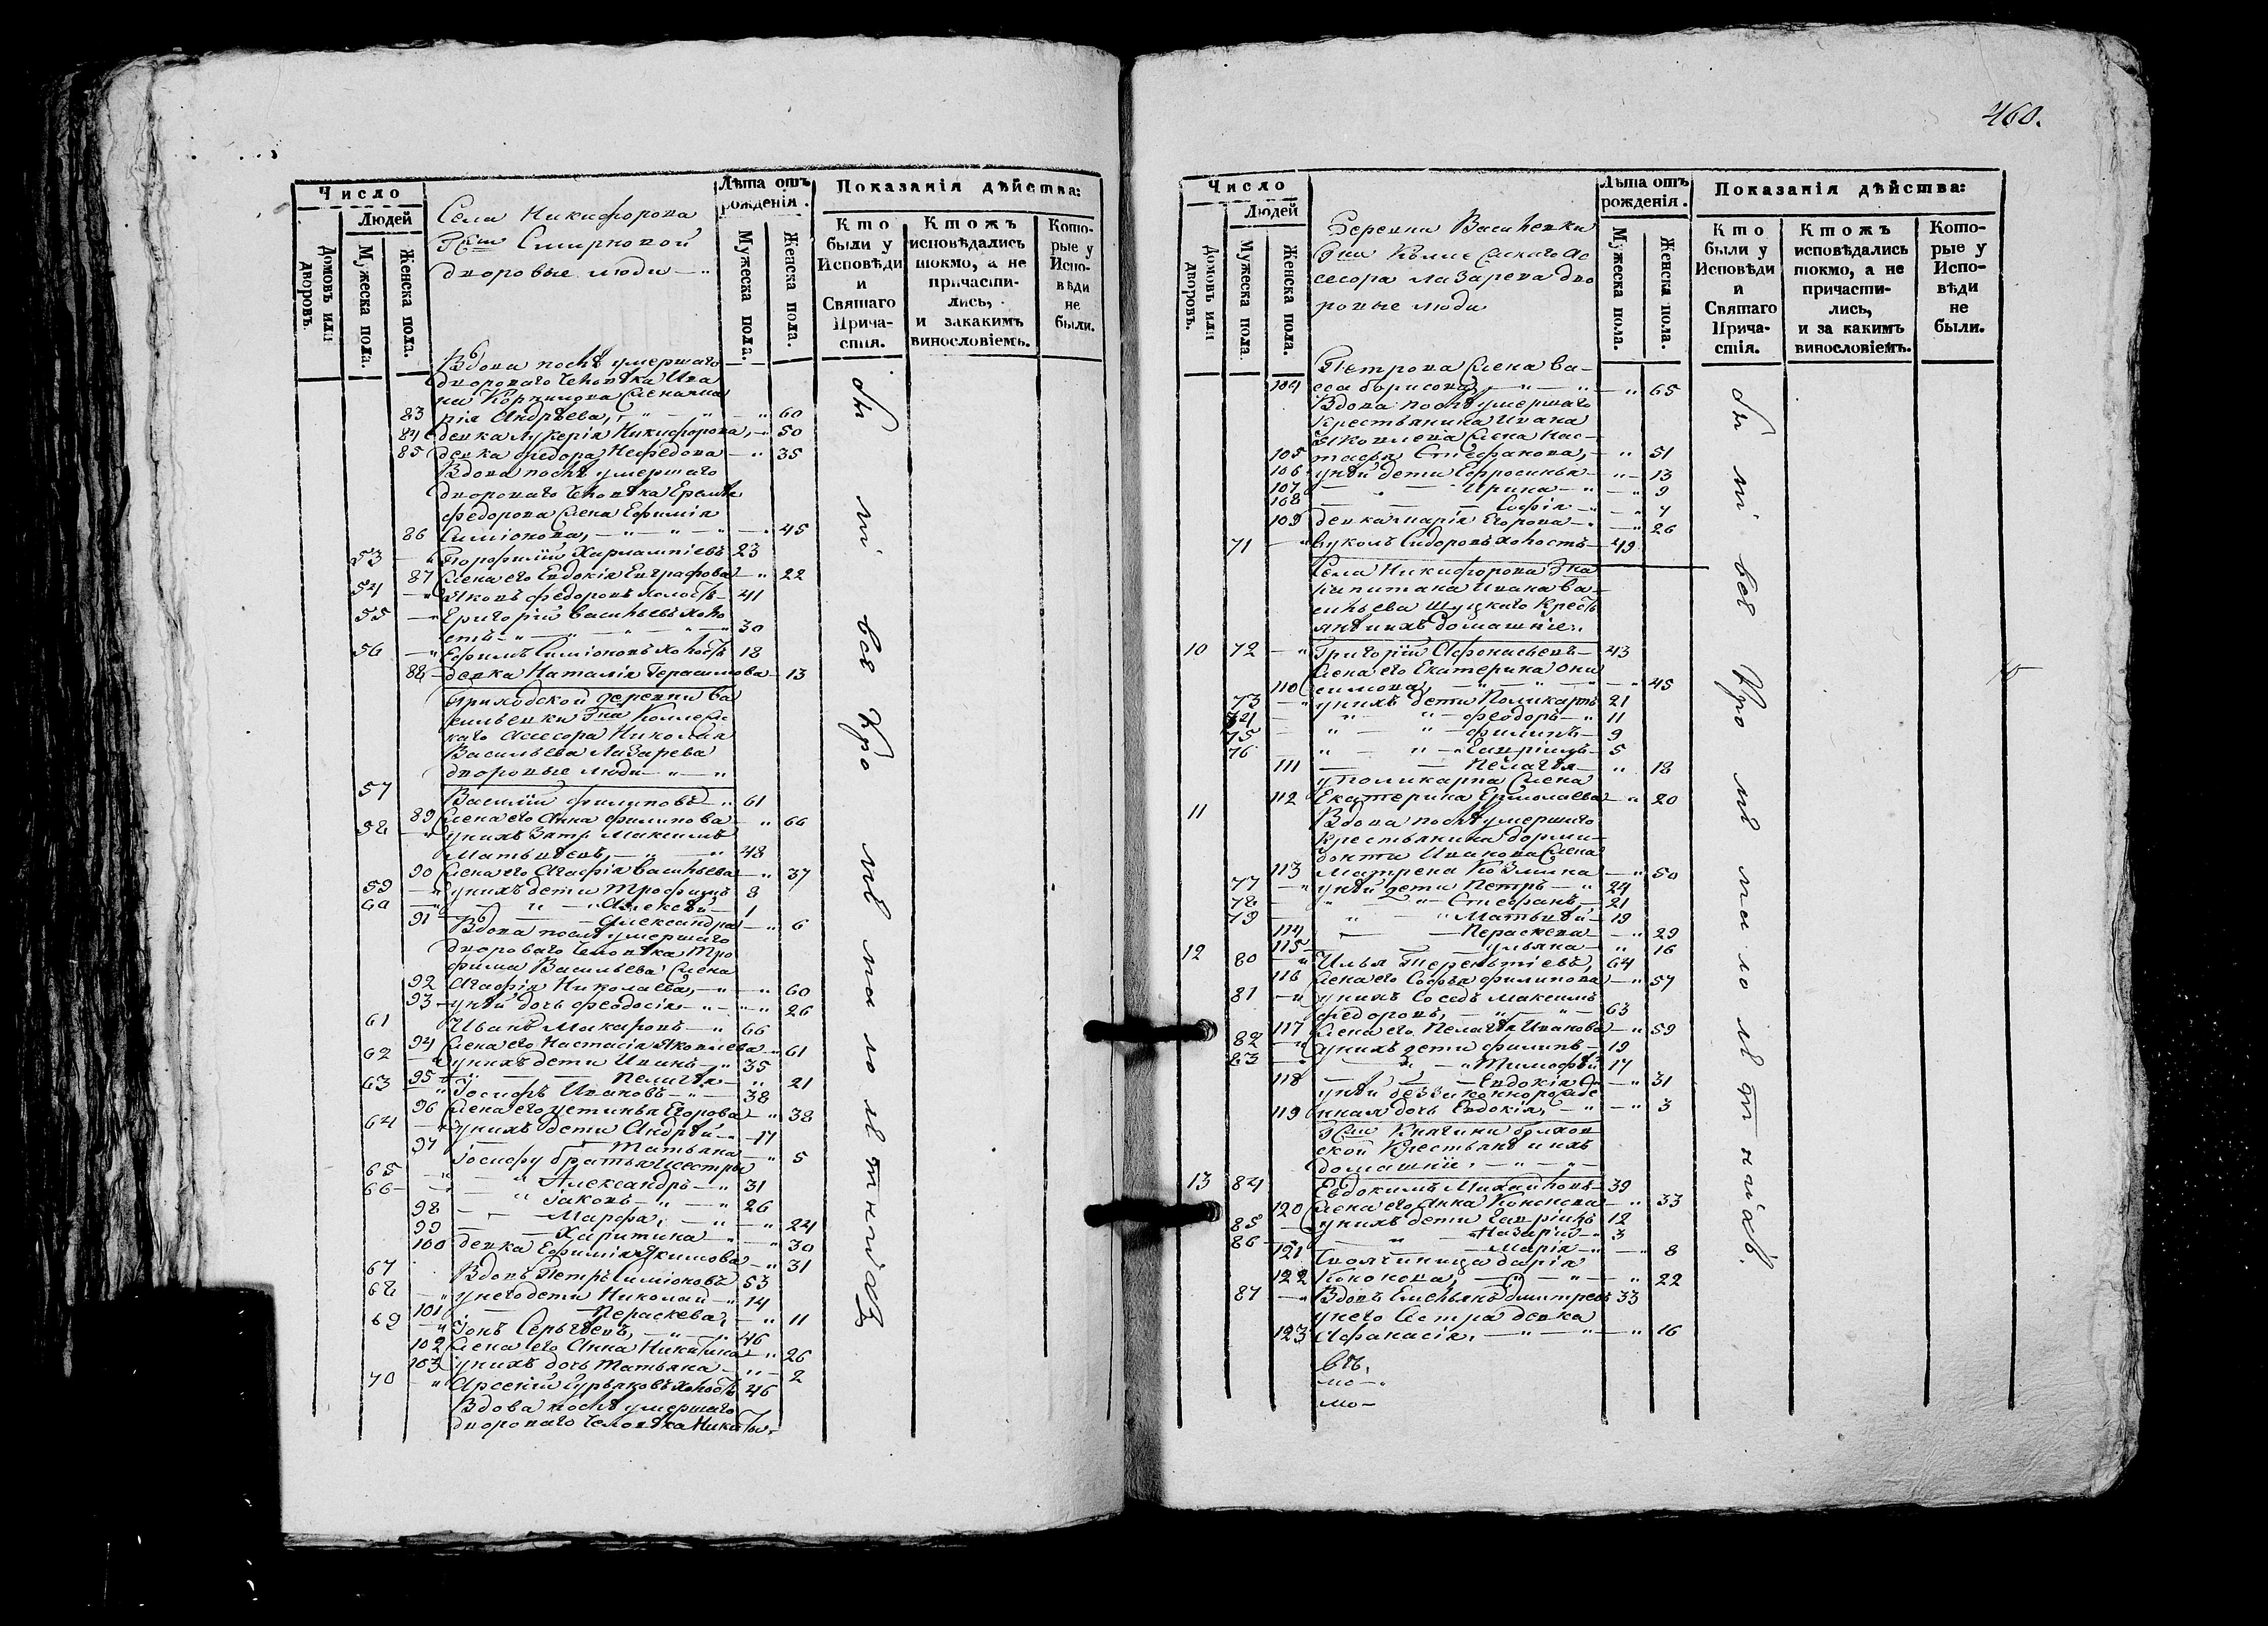 460.
Число
Людей
Домовъ или дворовъ.
Мужеска пола.
Женска пола.
Села Никифорова
Гжи Смирновой
дворовые люди
Лѣта отъ рожденія.
Мужеска пола.
Женска пола.
Показанія дѣйства:
Кто были у Исповѣди и Святаго Прича-стія.
Ктожъ исповѣдались токмо, а не причасти-лись, и закакимъ винословіемъ.
Кото-рые у Испо-вѣди не были.
Вдова послѣ умершаго
двороваго человѣка Ива
на жена Ма
83 рія Андрѣева, 60
84 девка Лукерія Никифорова, 50
85 девка Федора Нефедова 35
Вдова послѣ умершаго
двороваго человѣка Еремѣя
Федорова жена Ефимія
86 Симіонова, 45
53 Харлампіевъ 23
87 жена его Евдокія Евграфова 22
54 Яковъ Федоровъ холостъ 41
55 Григорій Васильевъ холо
стъ 30
56 Ефимъ Симіоновъ холостъ 18
88 девка Наталія Герасимова 13
Приходской деревни Ва
сильевки Гна Коллежс
каго Асессора Николая
Васильева Лазарева
дворовые люди
57 Василій Филиповъ 61
89 жена его Анна Филипова 66
58 унихъ зять Максимъ
Матвѣевъ, 48
90 жена его Агафія Васильева 37
59 унихъ дети Трофимъ 8
60 Алексѣй 1
91 Александра 6
Вдова послѣ умершаго
двороваго человѣка Тро
фима Васильева жена
92 Агафія Николаева, 60
93 уней дочь Феодосія 26
61 Иванъ Макаровъ 66
94 жена его Настасія Яковлева 61
62 унихъ дети Иванъ 35
95 Пелагѣя 21
63 Іосифъ Ивановъ 38
96 жена его Устинья Егорова 38
64 унихъ дети Андрѣй 17
97 Татьяна 5
Іосифу братья и сестры
65 Александръ 31
66 Іаковъ 26
98 Марфа, 24
99 Харитина 30
100 девка Ефимія Якимова 31
67 Вдовъ Петръ Симіоновъ 53
68 унего дети Николай 14
101 Пераскева, 11
69 Іонъ Сергѣевъ, 46
102 жена его Анна Никитина 26
103 унихъ дочь Татьяна 2
70 Арсеній Гурьяновъ холостъ 46
Вдова послѣ умершаго
двороваго человѣка Никиты
были всѣ кромѣ малолѣтнихъ
Число
Людей
Домовъ или дворовъ.
Мужеска пола.
Женска пола.
Деревни Васильевки
Гна Коллежскаго Ас
сесора Лазарева дво
ровые люди
Лѣта отъ рожденія.
Мужеска пола.
Женска пола.
Показанія дѣйства:
Кто были у Исповѣди и Святаго Прича-стія.
Ктожъ исповѣдались токмо, а не причасти-лись, и за какимъ винословіемъ.
Кото-рые у Испо-вѣди не были.
Петрова жена Ва-
104 са Борисова, 65
Вдова послѣ умершаго
Крестьянина Ивана
Яковлева жена Нас-
105 тасья Стефанова, 51
106 уней дети Ефросинья 13
107 Ирина 9
108 Софія 7
109 девка Марія Егорова 26
71 Вуколъ Сидоровъ холостъ 49
Села Никифорова Гна
Капитана Ивана Ва-
сильева Шуцкаго Кресть
янѣ ихъ домашніе.
10 72 Григорій Афонасьевъ 43
жена его Екатерина Они
110 симова, 45
73 унихъ дети Поликарпъ 21
74 Феодоръ 11
75 Филипъ 9
76 Гавріилъ 5
111 Пелагѣя 18
у Поликарпа жена
112 Екатерина Ермолаева 20
11 Вдова послѣ умершаго
крестьянина Дорми-
донта Иванова жена
113 Матрена Козмина 50
77 уней дети Петръ 24
78 Стефанъ 21
79 Матвѣй 19
114 Пераскева 29
115 Ульяна 16
12 80 Илья Терентіевъ, 64
116 жена его Софья Филипова 57
81 унихъ Соседъ Максимъ
Федоровъ, 63
117 жена его Пелагѣя Иванова 59
82 унихъ дети Филипъ 19
83 Тимофѣй 17
118 Евдокія 31
уней беззаконнорожде
119 нная дочь Евдокія, 3
Гжи Княгини Волхов
ской Крестьянѣ и ихъ
домашніе.
13 84 Евдокимъ Михайловъ 39
120 жена его Анна Кононова 33
85 унихъ дети Гавріилъ 12
86 Назарій 3
121 Марія 8
Своячиница Дарія
122 Кононова, 22
87 Вдовъ Емельянъ Дмитревъ 33
унего сестра девка
123 Афанасія, 16
были всѣ кромѣ малолѣтнихъ.